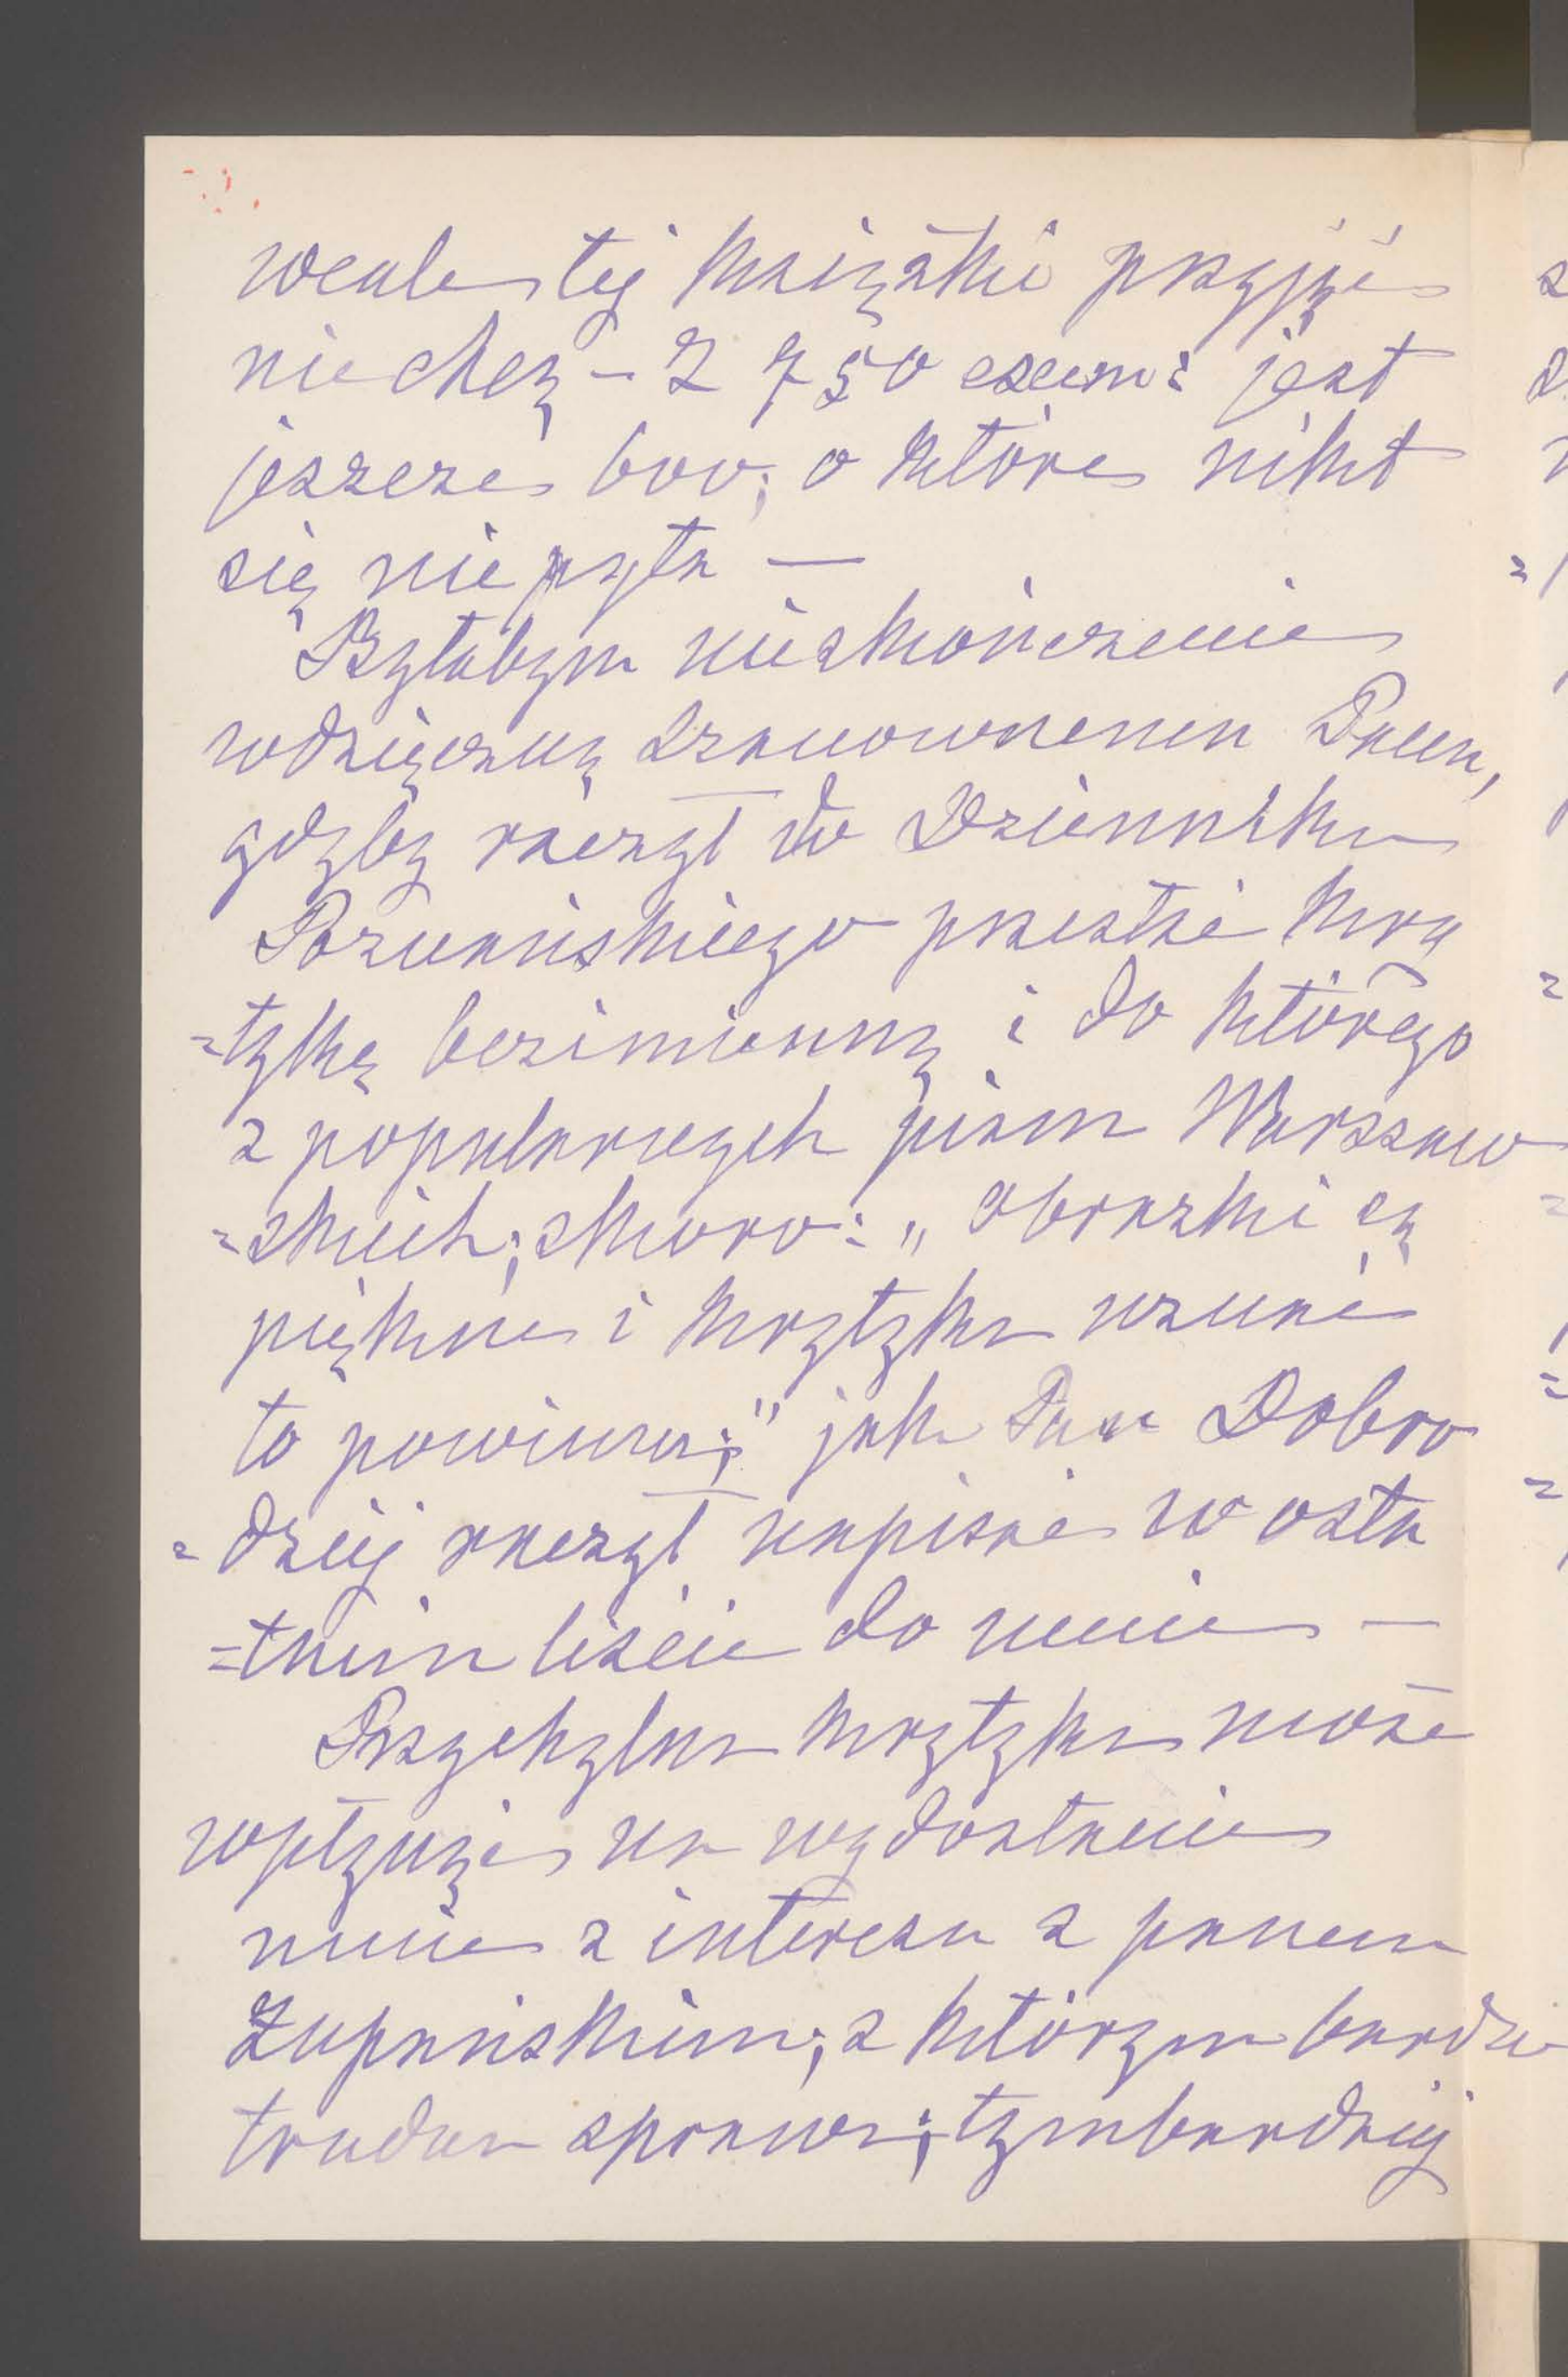 wcale tej książki przyjąć
nie chcą – Z 750 exem: jest
jeszcze 600; o które nikt
się nie pyta —
Byłabym nieskończenie
wdzięczną szanownemu Panu,
gdyby raczył do Dziennika
Poznańskiego przesłać kry
=tykę bezimienną i do którego
z popularnych pism Warszaw
=skich; skoro: „obrazki są
piękne i krytyka uznać
to powinna;" jak Pan Dobro
=dziej raczył napisać w osta
=tnim liście do mnie —
Przychylna krytyka może
wpłynąć na wydostanie
mnie z interesu z panem
Żupańskim; z którym bardzo
trudna sprawa; tymbardziej